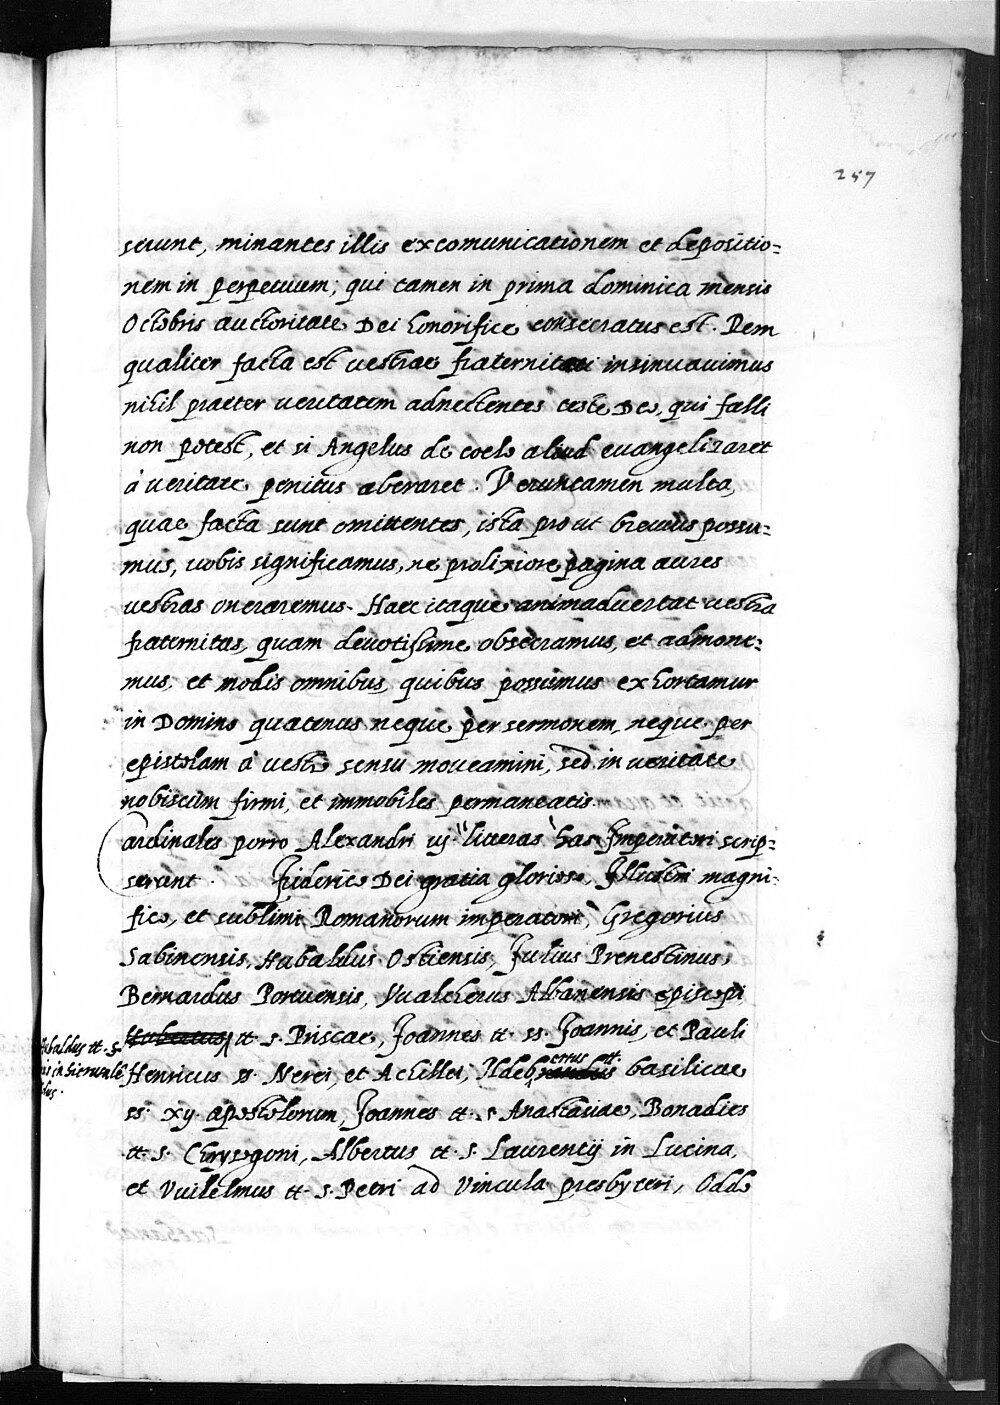 257
serunt, minantes illis excomunicationem et depositio=
nem in perpetuum; qui tamen in prima dominica mensis
Octobris auctoritate Dei honorifice consecratus est. Rem
qualiter facta est vestrae fraternitati insinuavimus
nihil praeter veritatem adnectentes teste Deo, qui falli
non potest, et si Angelus de coelo aliud evangelizaret
à veritate penitus aberraret. Veruntamen multa,
quae facta sunt omittentes, ista prout brevius possu=
mus, vobis significamus, ne prolixiore pagina aures
vestras oneraremus. Haec itaque animadvertat vestra
fraternitas, quam devotissime obsecramus, et admone=
mus, et modis omnibus, quibus possumus exhortamur
in Domino quatenus neque per sermonem, neque per
epistolam à vestro sensu moveamini, sed in veritate
nobiscum firmi, et immobiles permaneatis
Cardinales porro Alexandri iij litteras has Imperatori scrip=
serunt. Friderico Dei gratia glorioso, Illustri magni=
fico, et sublimi Romanorum imperatori, Gregorius
Sabinensis, Hubaldus Ostiensis, Julius Prenestinus,
Bernardus Portuensis, Vualtherus Albanensis episcopi
Hubertus tt. s. Priscae, Joannes tt. ss. Joannis, et Pauli
Hubaldus tt. s.
in Hierusalē
Henricus ss. Nerei, et Achillei, Ildebrandus basilicae
ss. xij. apostolorum, Joannes tt. s. Anastasiae, Bonadies
tt. s. Chrysogoni, Albertus tt. s. Laurentij in Lucina,
et Vuilelmus tt. s. Petri ad Vincula presbyteri, Oddo